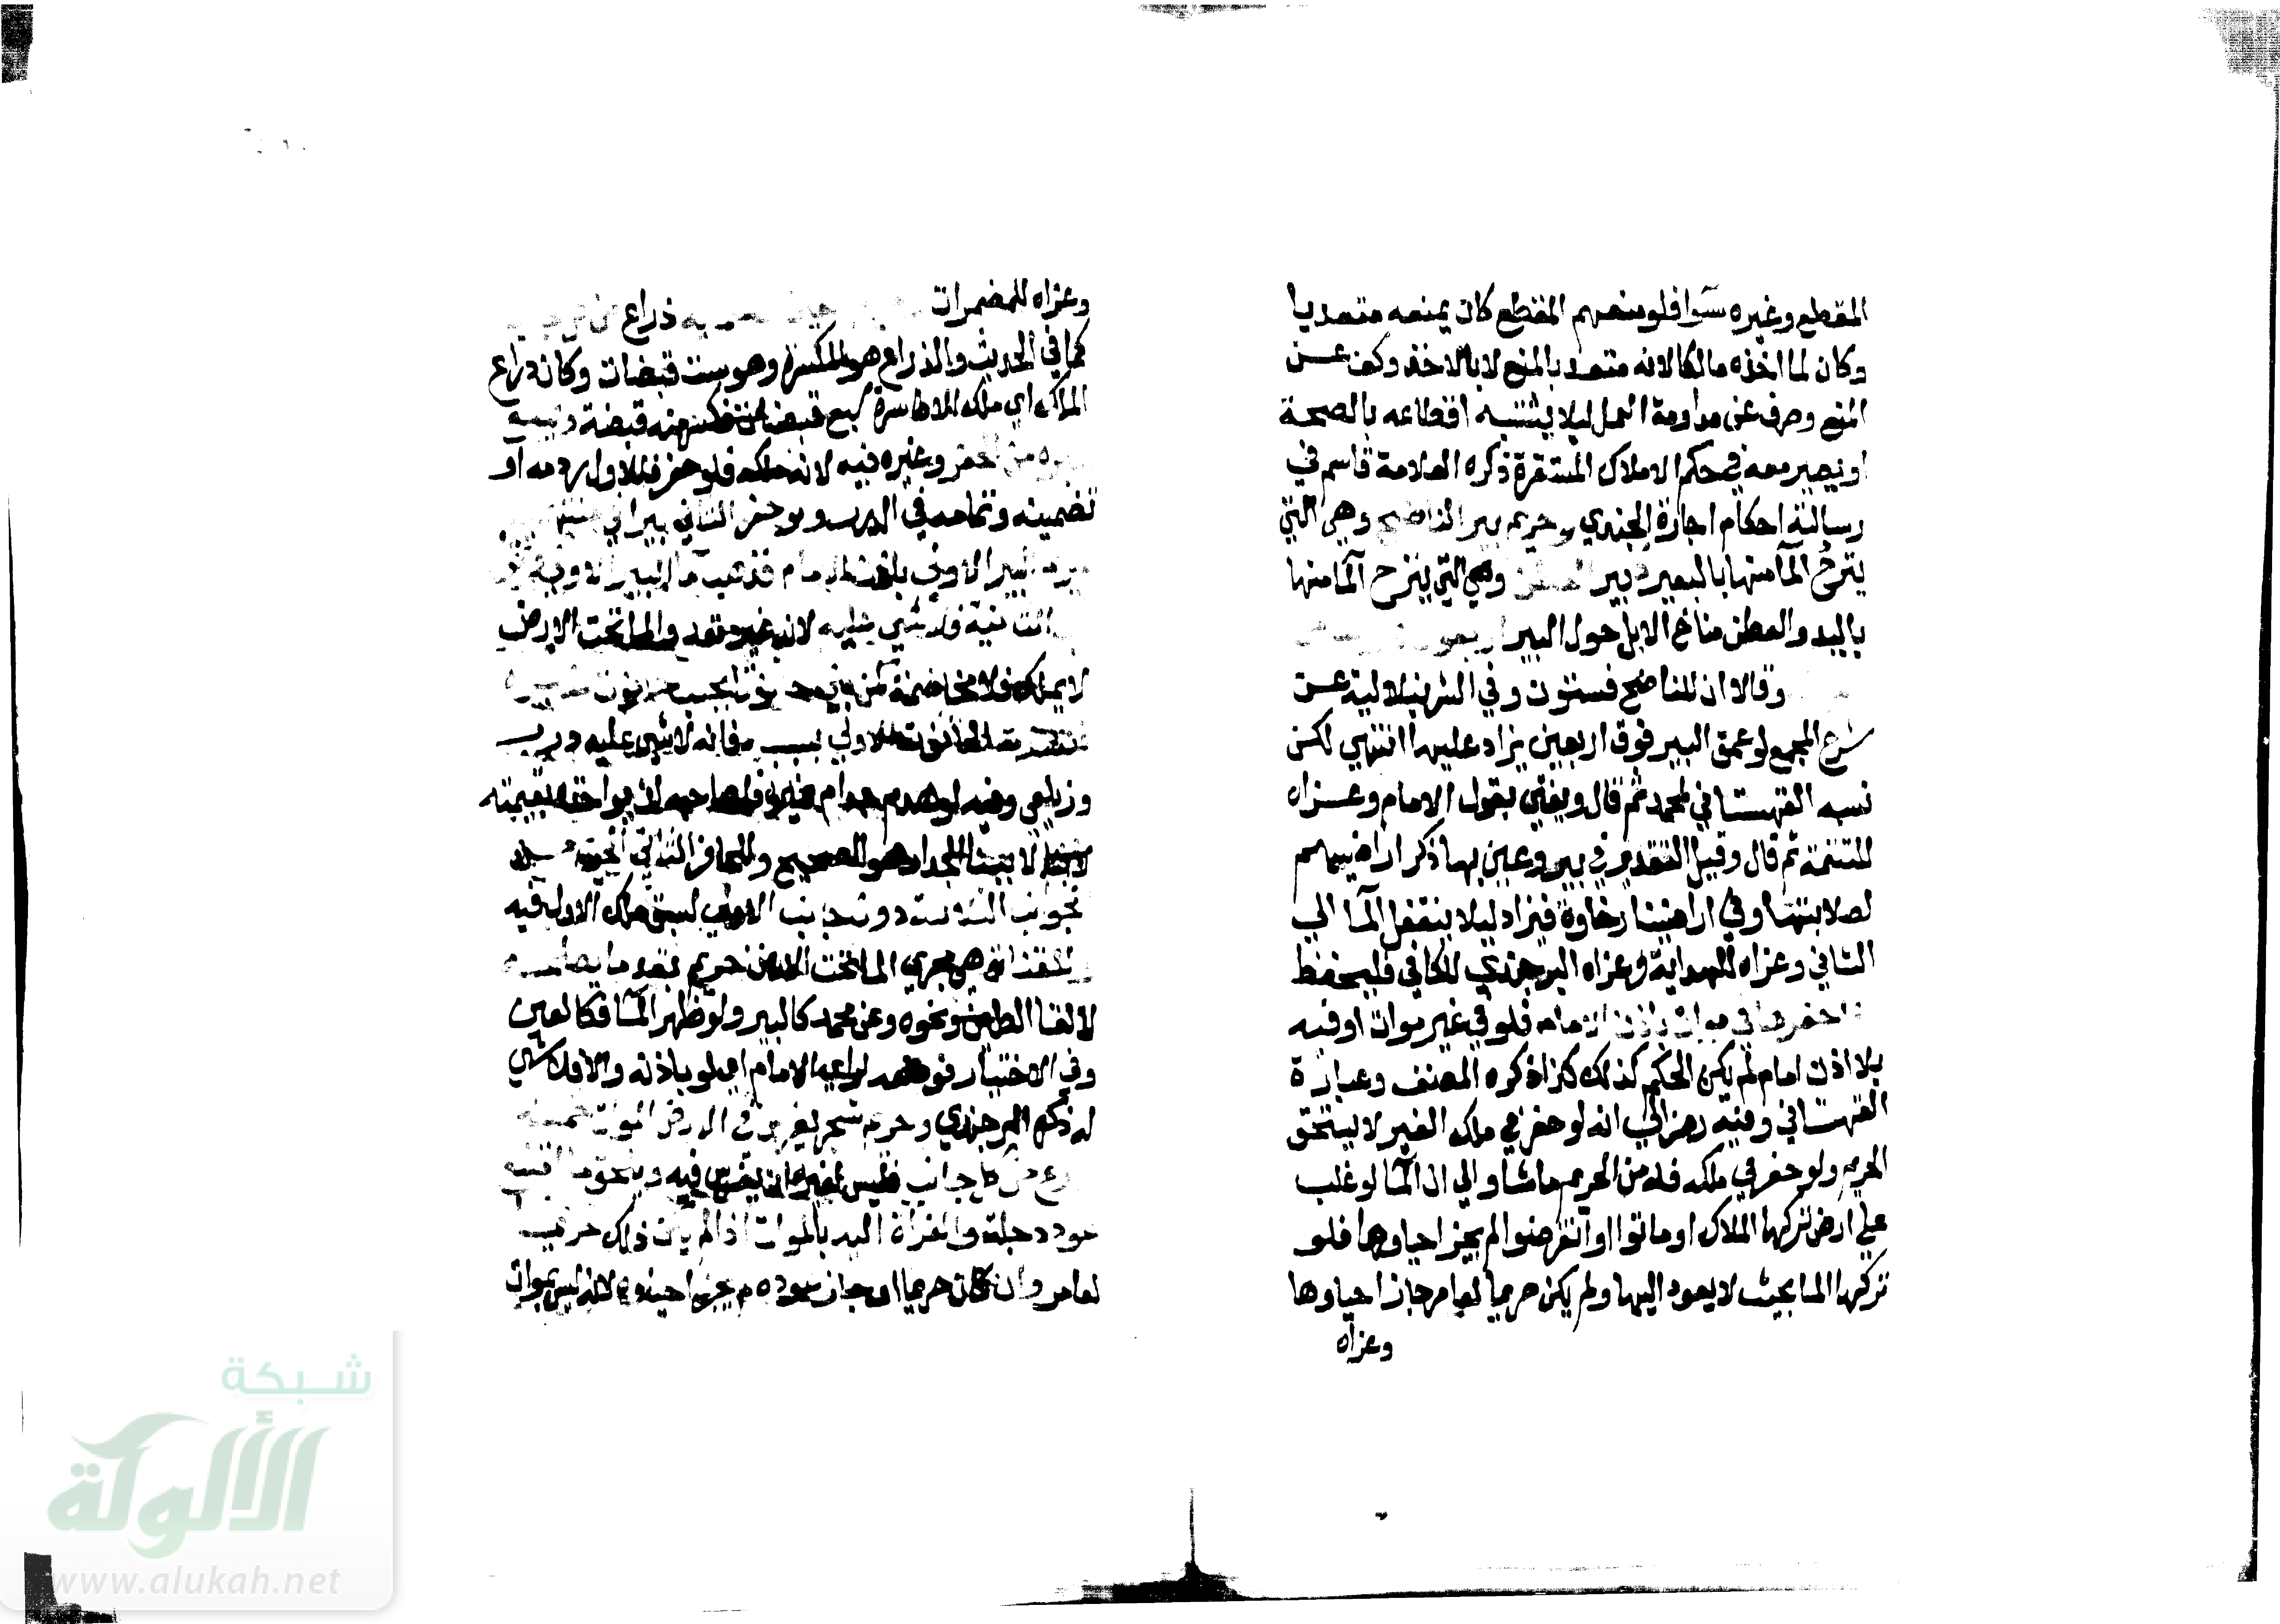 المقطع وغيره سوا فلو منعهم المقطع كان يمنعه متعديا
وكان لما اخذه مالكا لانه متعد بالمنع لا بالاخذ وكف عن
المنع وصرف عن مداومة العمل ليلا يشتبه اقطاعه بالصحة
او يصير معه في حكم الاملاك المستقرة ذكره العلامة قاسم في
رسالته احكام اجارة الجندي وحريم بير الناضح وهي التي
ينزح المآ منها بالبعير وبير العطن وهي التي ينزح المآ منها
باليد والعطن مناخ الابل حول البير اربعون
وقالا ان للناضح فستون وفي الشرنبلالية عن
شرح المجمع لو عمق البير فوق اربعين يزاد عليها انتهي لكن
نسبه القهستاني لمحمد ثم قال ويفتي بقول الامام وعزاه
للتتمة ثم قال وقيل التقدير في بير وعين بما ذكر اراضيهم
لصلابتها وفي اراضينا رخاوة فيزاد ليلا ينتقل المآ الي
الثاني وعزاه للهداية وعزاه البرجندي للكافي فليحفظ
حفرها في موات باذن الامام فلو في غير موات او فيه
بلا اذن امام لم يكن الحكم كذلك كذا ذكره المصنف وعبارة
القهستاني وفيه رمز الي انه لو حفر في ملك الغير لا يستحق
الحريم ولو حفر في ملكه فله من الحريم ما شا والي ان المآ لو غلب
علي ارض تركها الملاك او ماتوا او انقرضوا لم يجز احياوها فلو
تركها الما بحيث لا يعود اليها ولم يكن حريما لعامر جاز احياوها
وعزاه
وعزاه للمضمرات ذراع من
كما في الحديث والذراع هو المكسرة وهو ست قبضات وكان ذراع
الملك اي ملك الاكاسرة سبع قبضات فكسر منه قبضة
من الحفر وغيره فيه لانه ملكه فلو حفر فللاول ردمه او
تضمينه وتمامه في الدرر ولو حفر الثاني بيرا في منتهي
البير الاولي باذن الامام فذهب مآ البير الاولي
الثانية فلا شي عليه لانه غير متعد والما تحت الارض
لا يملك فلا مخاصمة كمن بني حانوتا بجنب حانوت غيره
فكسدت الحانوت الاولي بسببه فانه لا شي عليه درر
وزيلعي وفيه لو هدم جدار غيره فلصاحبه ان يواخذه بقيمته
لا ببنا الجدار هو الصحيح وللحافر الثاني الحريم من
الجوانب الثلاثة دون جانب الاولي لسبق ملك الاول فيه
وللقناة هي مجري الما تحت الارض حريم بقدر ما يصلحه
لالقا الطين ونحوه وعن محمد كالبير ولو ظهر المآ فكالعين
وفي الاختيار فوضه لراي الامام اي لو باذنه والا فلا شي
له ذكره البرجندي وحريم شجر يغرس في الارض الموات خمسة
من كل جانب فليس لغيره ان يغرس فيه ويلحق ما امتنع
عود دجلة والفرات اليه بالموات اذا لم يكن ذلك حريما
لعامر وان كان حريما او جاز عوده لم يجز احياوه لانه ليس بموات
شبكة
الألوكة
www.alukah.net